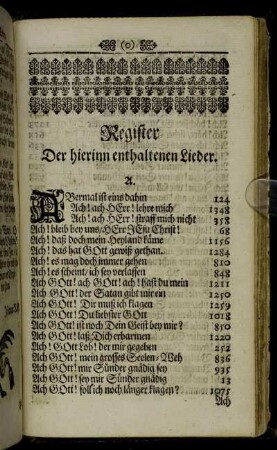 (0)
Register
Der hierinn enthaltenen Lieder.
A.
ABermal ist eins dahin 124
Ach! ach HErr! lehre mich 1348
Ach! ach HErr! straff mich nicht 358
Ach! bleib bey uns/ HErr JEsu Christ! 68
Ach! daß doch mein Heyland käme 1156
Ach! das hat GOtt gewiß gethan. 1284
Ach! es mag doch immer gehen 810
Ach! es scheint, ich sey verlassen 848
Ach GOtt! ach GOtt! ach! hast du mein 1211
Ach GOtt! der Satan gibt mir ein 1250
Ach GOtt! Dir muß ich klagen 1259
Ach GOtt! Du liebster GOtt 1018
Ach GOtt! ist noch Dein Geist bey mir? 850
Ach GOtt! laß Dich erbarmen 1220
Ach! GOtt Lob! der mir gegeben 252
Ach GOtt! mein grosses Seelen-Weh 836
Ach GOtt! mir Sünder gnädig sey 935
Ach GOtt! sey mir Sünder gnädig 13
Ach GOtt! soll ich noch länger klagen? 1075
Ach